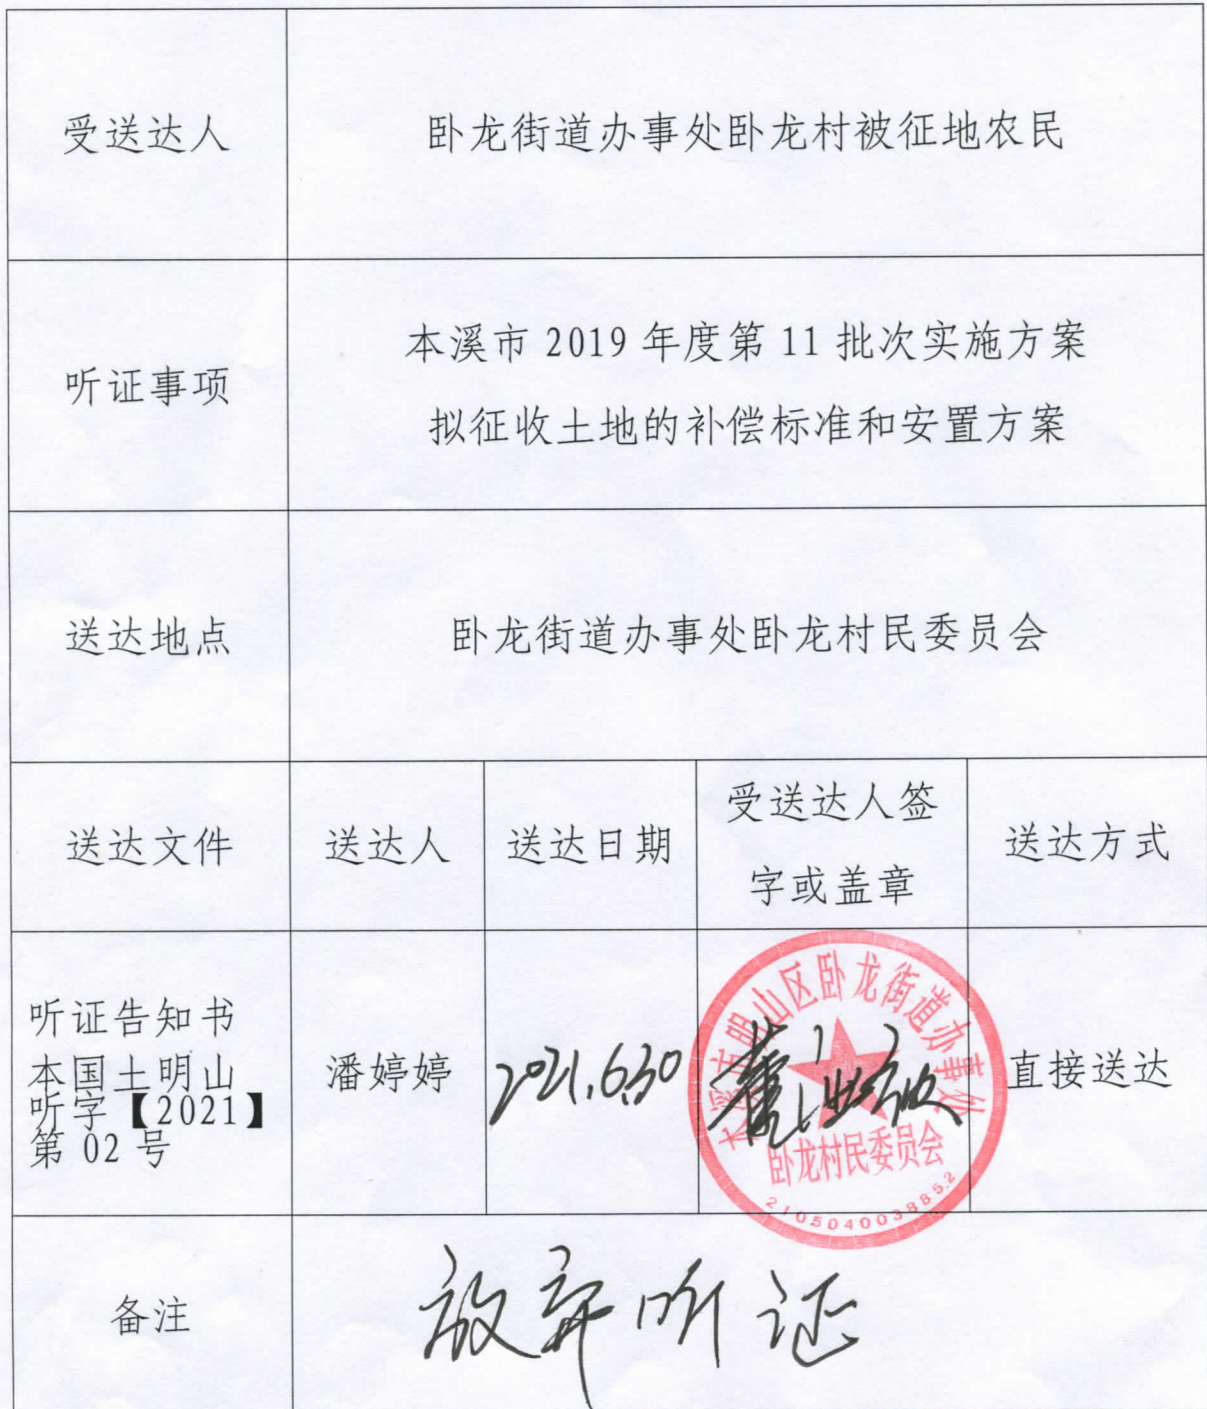 受送达人
卧龙街道办事处卧龙村被征地农民
听证事项
本溪市 2019 年度第 11 批次实施方案
拟征收土地的补偿标准和安置方案
送达地点
卧龙街道办事处卧龙村民委员会
送达文件
送达人
送达日期
受送达人签
字或盖章
送达方式
听证告知书
本国土明山
听字【2021】
第 02 号
潘婷婷
2021.6.30
本溪市明山区卧龙街道办事处
卧龙村民委员会
2105040038852
直接送达
备注
放弃听证